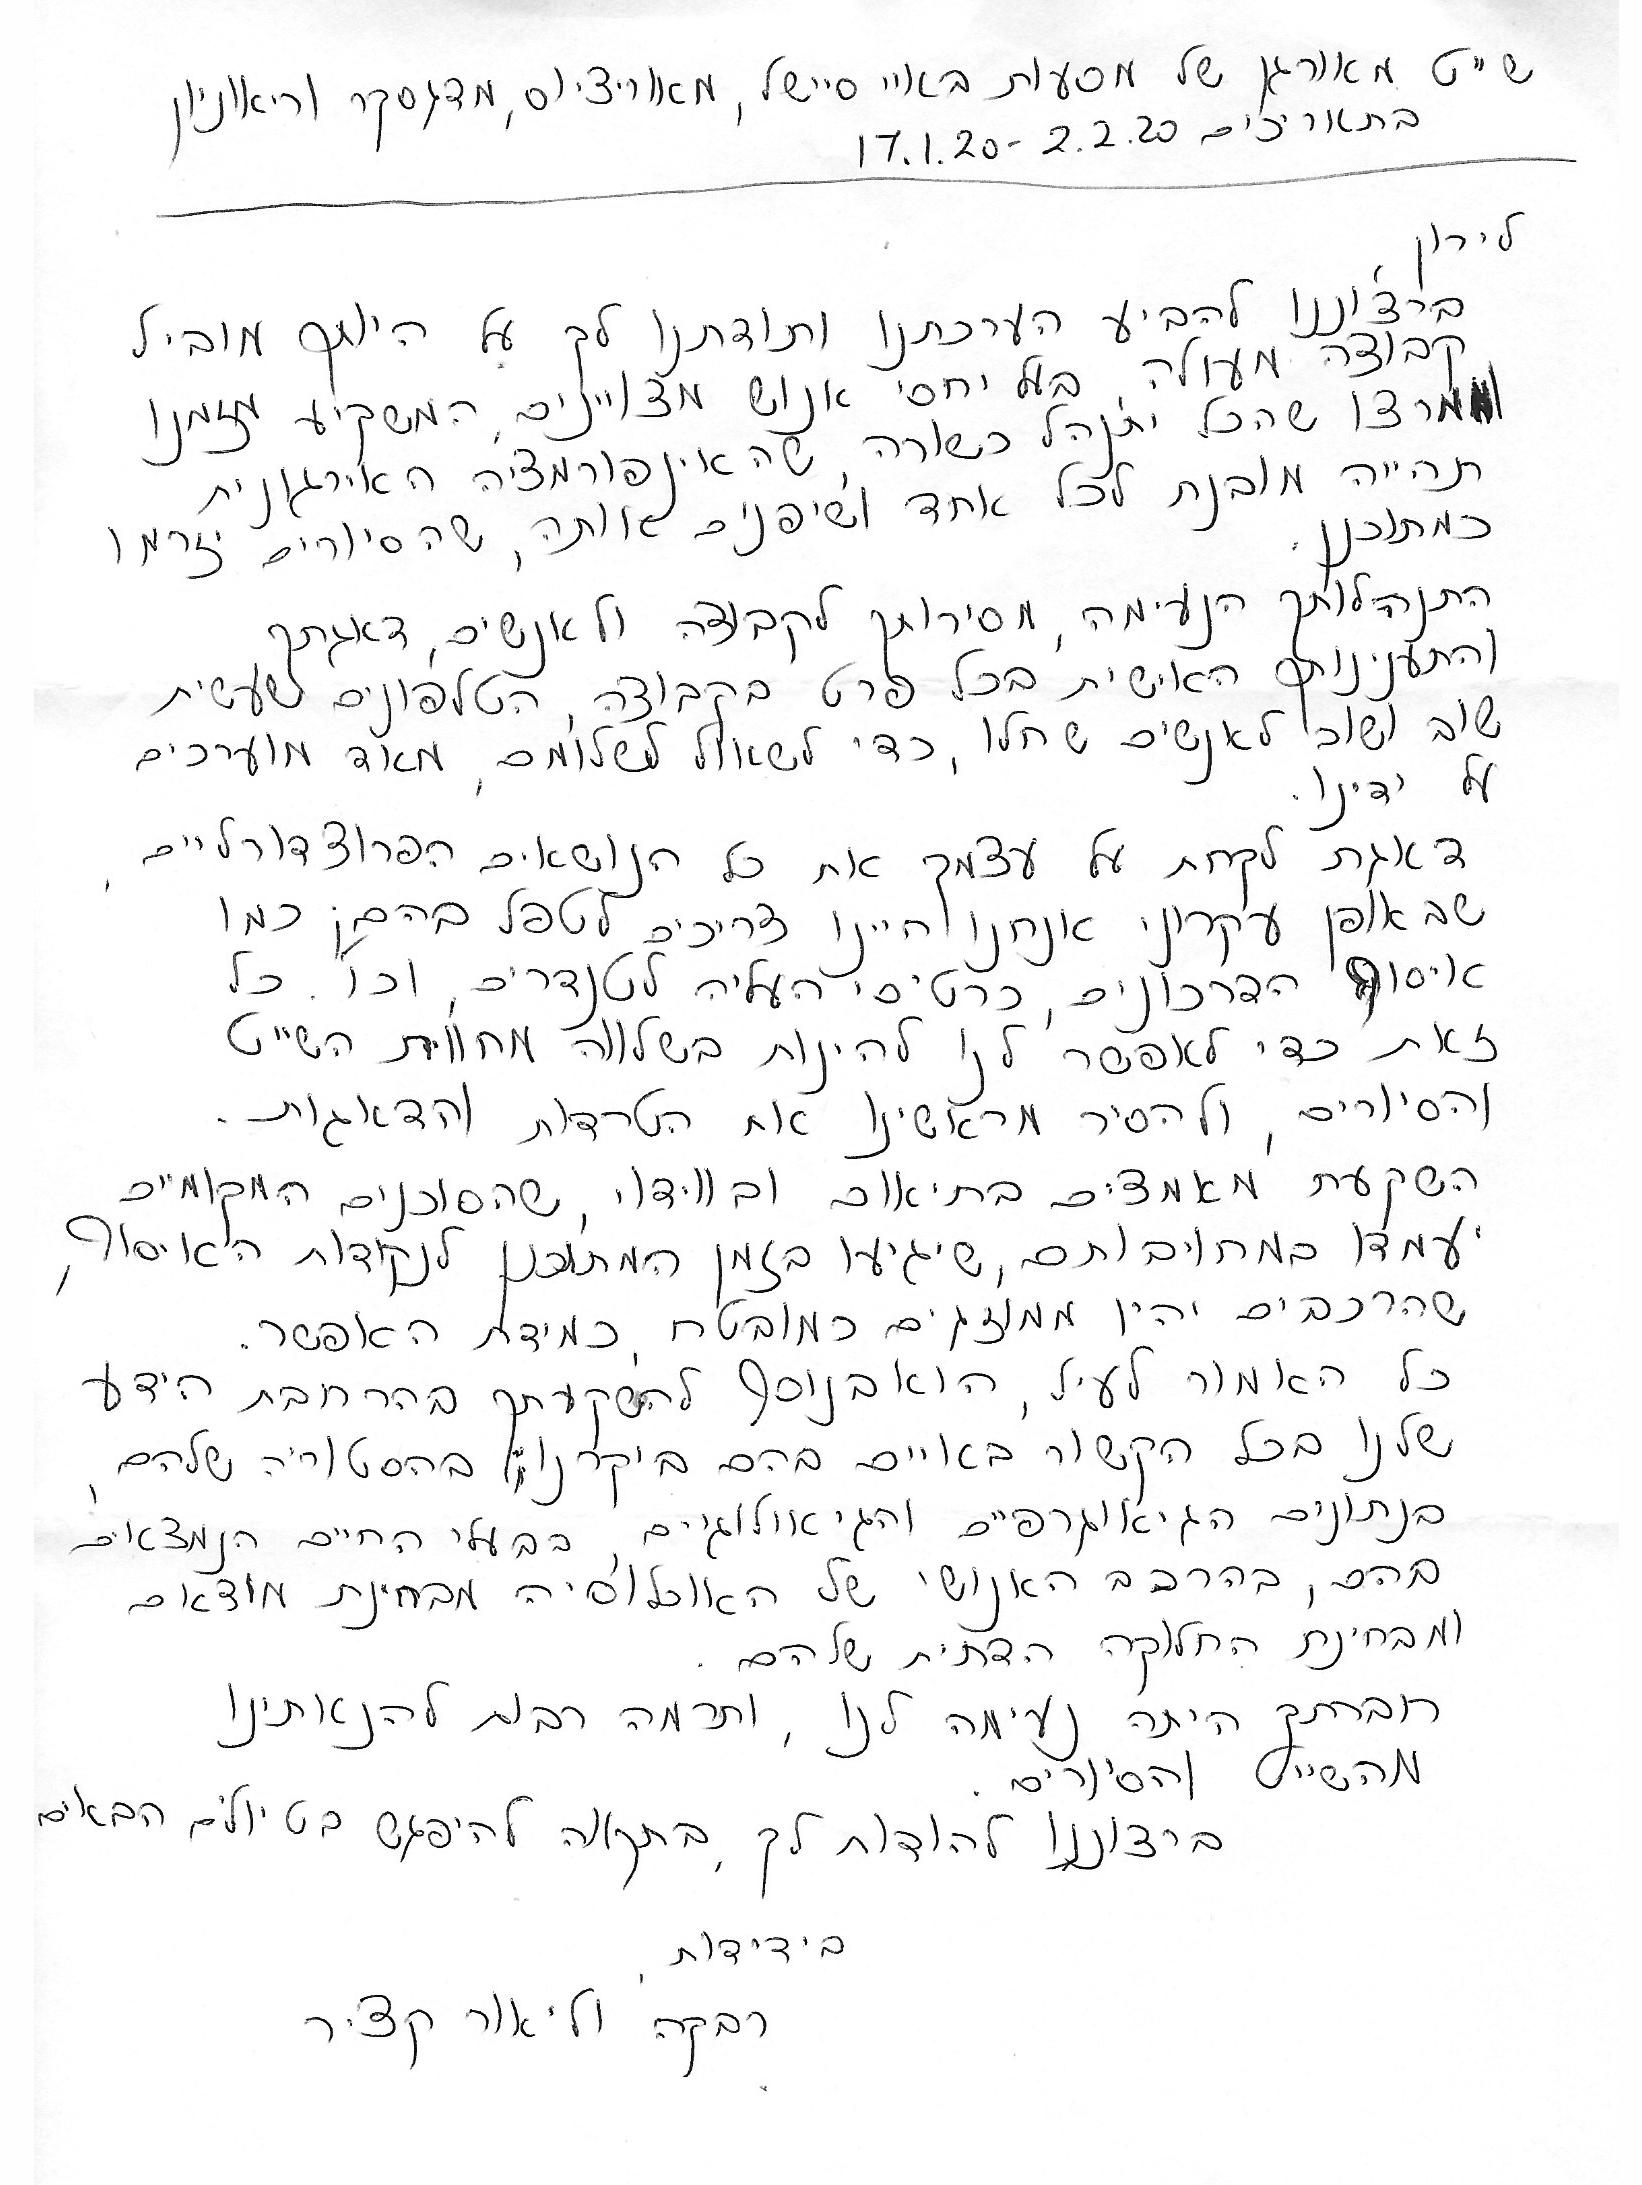 שייט מאורגן של מסעות באיי סיישל, מאוריציוס, מדגסקר וריאוניון
בתאריכים 17.1.20-2.2.20
לירון,
ברצוננו להביע הערכתנו ותודתנו לך על היותך מוביל
קבוצה מעולה בעל יחסי אנוש מצויינים, המשקיע מזמנו
וממרצו שהכל יתנהל כשורה, שהאינפורמציה האירגונית
תהייה מובנת לכל אחד ושיפנים אותה, שהסיורים יזרמו
כמתוכנן.
התנהלותך הנעימה, מסירותך לקבוצה ולאנשים, דאגתך
והתענינותך האישית בכל פרט בקבוצה, הטלפונים שעשית
שוב ושוב לאנשים שחלו, כדי לשאול לשלומם, מאוד מוערכים
על ידינו.
דאגת לקחת על עצמך את כל הנושאים הפרוצדורליים,
שבאופן עקרוני אנחנו היינו צריכים לטפל בהם; כמו
איסוף הדרכונים, כרטיסי העליה לטנדרים, וכו'. כל
זאת כדי לאפשר לנו להינות בשלווה מחווית השייט
והסיורים, ולהסיר מראשינו את הטרדות והדאגות.
השקעת מאמצים בתיאום ובווידוי, שהסוכנים המקומיים
יעמדו במחויבותם, שיגיעו בזמן המתוכנן לנקודות האיסוף,
שהרכבים יהיו ממוזגים כמובטח, כמידת האפשר.
כל האמור לעיל, הוא בנוסף להשקעתך בהרחבת הידע
שלנו בכל הקשור באויים בהם ביקרנו; בהסטוריה שלהם,
בנתונים הגיאוגרפיים והגיאולוגיים, בבעלי החיים הנמצאים
בהם, בהרכב האנושי של האוכלוסיה מבחינת מוצאם
ומבחינת החלוקה הדתית שלהם.
חברתך היתה נעימה לנו, ותרמה רבות להנאתינו
מהשייט והסיורים.
ברצוננו להודות לך, בתקווה להיפגש בטיולים הבאים
בידידות,
רבקה וליאור קציר